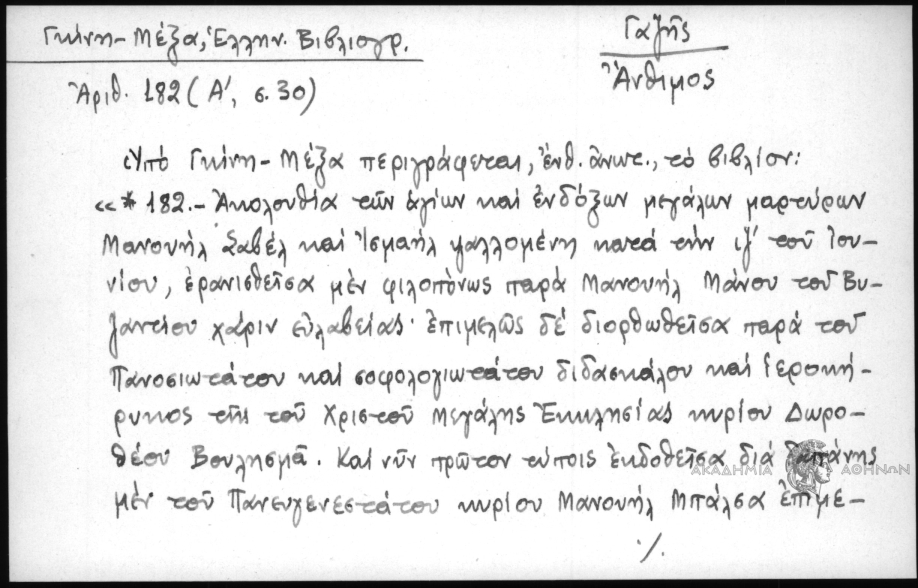 Γκίνη-Μέξα, Ἑλλην. Βιβλιογρ.
Γαζῆς
Ἀριθ. 182 (Α', σ. 30)
Ἄνθιμος
Ὑπό Γκίνη-Μέξα περιγράφεται, ἔνθ. ἄνωτ., τό βιβλίον:
«* 182.- Ἀκολουθία τῶν ἁγίων καί ἐνδόξων μεγάλων μαρτύρων
Μανουήλ Σαβέλ καί Ἰσμαήλ ψαλλομένη κατά τήν ιζ' τοῦ Ἰου-
νίου, ἐρανισθεῖσα μέν φιλοπόνως παρά Μανουήλ Μάνου τοῦ Βυ-
ζαντίου χάριν εὐλαβείας· ἐπιμελῶς δέ διορθωθεῖσα παρά τοῦ
Πανοσιωτάτου καί σοφολογιωτάτου διδασκάλου καί ἱεροκή-
ρυκος τῆς τοῦ Χριστοῦ Μεγάλης Ἐκκλησίας κυρίου Δωρο-
θέου Βουλησμᾶ. Καί νῦν πρῶτον τύποις ἐκδοθεῖσα διά δαπάνης
ΑΚΑΔΗΜΙΑ ΑΘΗΝΩΝ
μέν τοῦ Πανευγενεστάτου κυρίου Μανουήλ Μπάλσα ἐπιμε-
./.